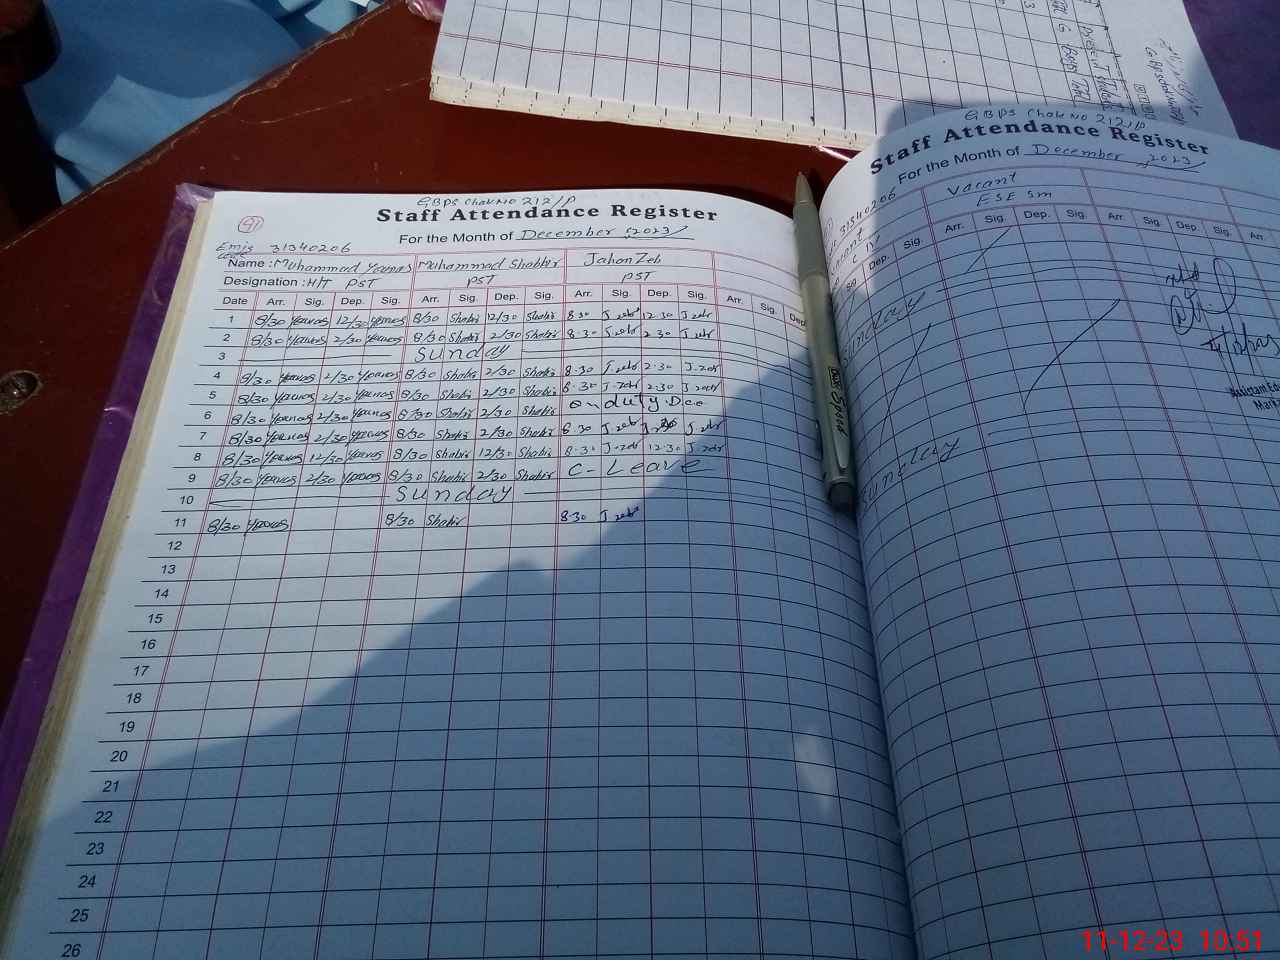 GBPS Chak No 212/P
Staff Attendance Register
For the Month of December, 2023
91
Emis code 31340206
Name : Muhammad Younas Muhammad Shabbir Jahan Zeb
Designation : H/T PST PST PST
Date Arr. Sig. Dep. Sig. Arr. Sig. Dep. Sig. Arr. Sig. Dep. Sig. Arr. Sig. Dep
1 8/30 Younas 12/30 Younas 8/30 Shabir 12/30 Shabir 8 30 J zeb 12 30 J zeb
2 8/30 Younas 2/30 Younas 8/30 Shabir 2/30 Shabir 8.30 J zeb 2 30 J zeb
3 Sunday
4 8/30 Younas 2/30 Younas 8/30 Shabir 2/30 Shabir 8.30 J zeb 2.30 J.zeb
5 8/30 Younas 2/30 Younas 8/30 Shabir 2/30 Shabir 8.30 J.zeb 2.30 J.zeb
6 8/30 Younas 2/30 Younas 8/30 Shabir 2/30 Shabir on duty Deo
7 8/30 Younas 2/30 Younas 8/30 Shabir 2/30 Shabir 8.30 J zeb J zeb
8 8/30 Younas 12/30 Younas 8/30 Shabir 12/30 Shabir 8.30 J-zeb 12.30 J zeb
9 8/30 Younas 2/30 Younas 8/30 Shabir 2/30 Shabir C-Leave
10 Sunday
11 8/30 Younas 8/30 Shabir 8.30 J zeb
12
13
14
15
16
17
18
19
20
21
22
23
24
25
26
GBPS Chak No 212/P
Staff Attendance Register
For the Month of December, 2023
31340206
Vacant
ESE Sm
Sig. Dep. Sig. Arr. Sig. Dep. Sig. Arr. Sig. Dep. Sig. Arr.
Sunday
Sunday
11-12-23 10:51